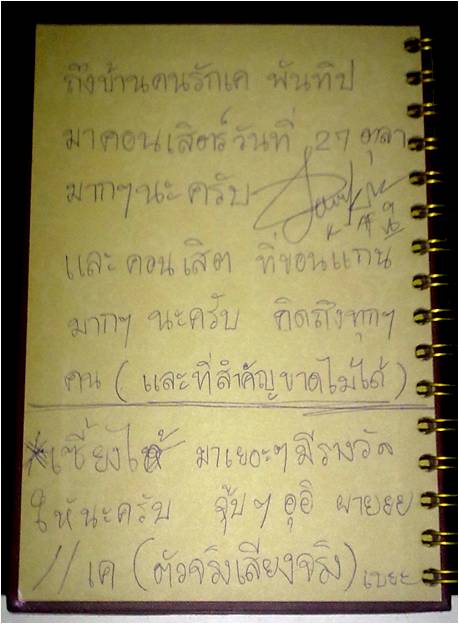 ถึงบ้านคนรักเค พันทิป
มาคอนเสิตร์วันที่ 27 ตุลา
มากๆนะครับ
และคอนเสิต ที่ขอนแก่น
มากๆ นะครับ คิดถึงทุกๆ
คน (และที่สำคัญขาดไม่ได้)
มาเยอะๆมีรางวัล
ให้นะครับ จุ๊บๆ อุอิ ผายยย
// เค (ตัวจริงเสียงจริง)